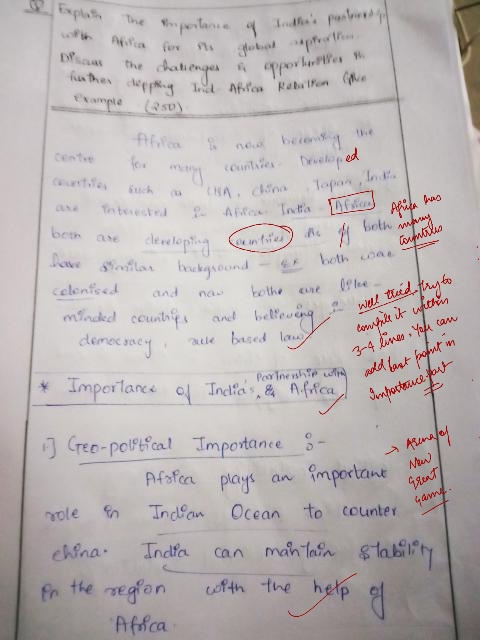 Q Explain The Importance of India's partnership
with Africa for its global aspiration.
Discuss the challenges & opportunities in
further depping Ind Africa Relation Give
Example (250)
Africa is now becoming the
centre for many countries. Developed
countries such as USA, China, Japan, India
are interested in Africa. India - Africa
both are developing countries. As both
have similar background - Ex both were
colonised and now bothe are like-
minded countries and believing in
democracy, rule based law.
Africa has
many
countries
Well tried. Try to
compile it within
3-4 lines. You can
add last point in
Importance part
* Importance of India's Partnership with & Africa
1.] Geo-political Importance :-
Africa plays an important
role in Indian Ocean to counter
china. India can maintain stability
in the region with the help of
Africa.
→ Arena of
New
Great
Game.